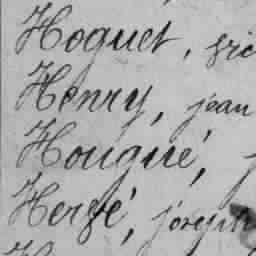 Hoguet,
Henry, jean
Hougué,
Hervé, joseph